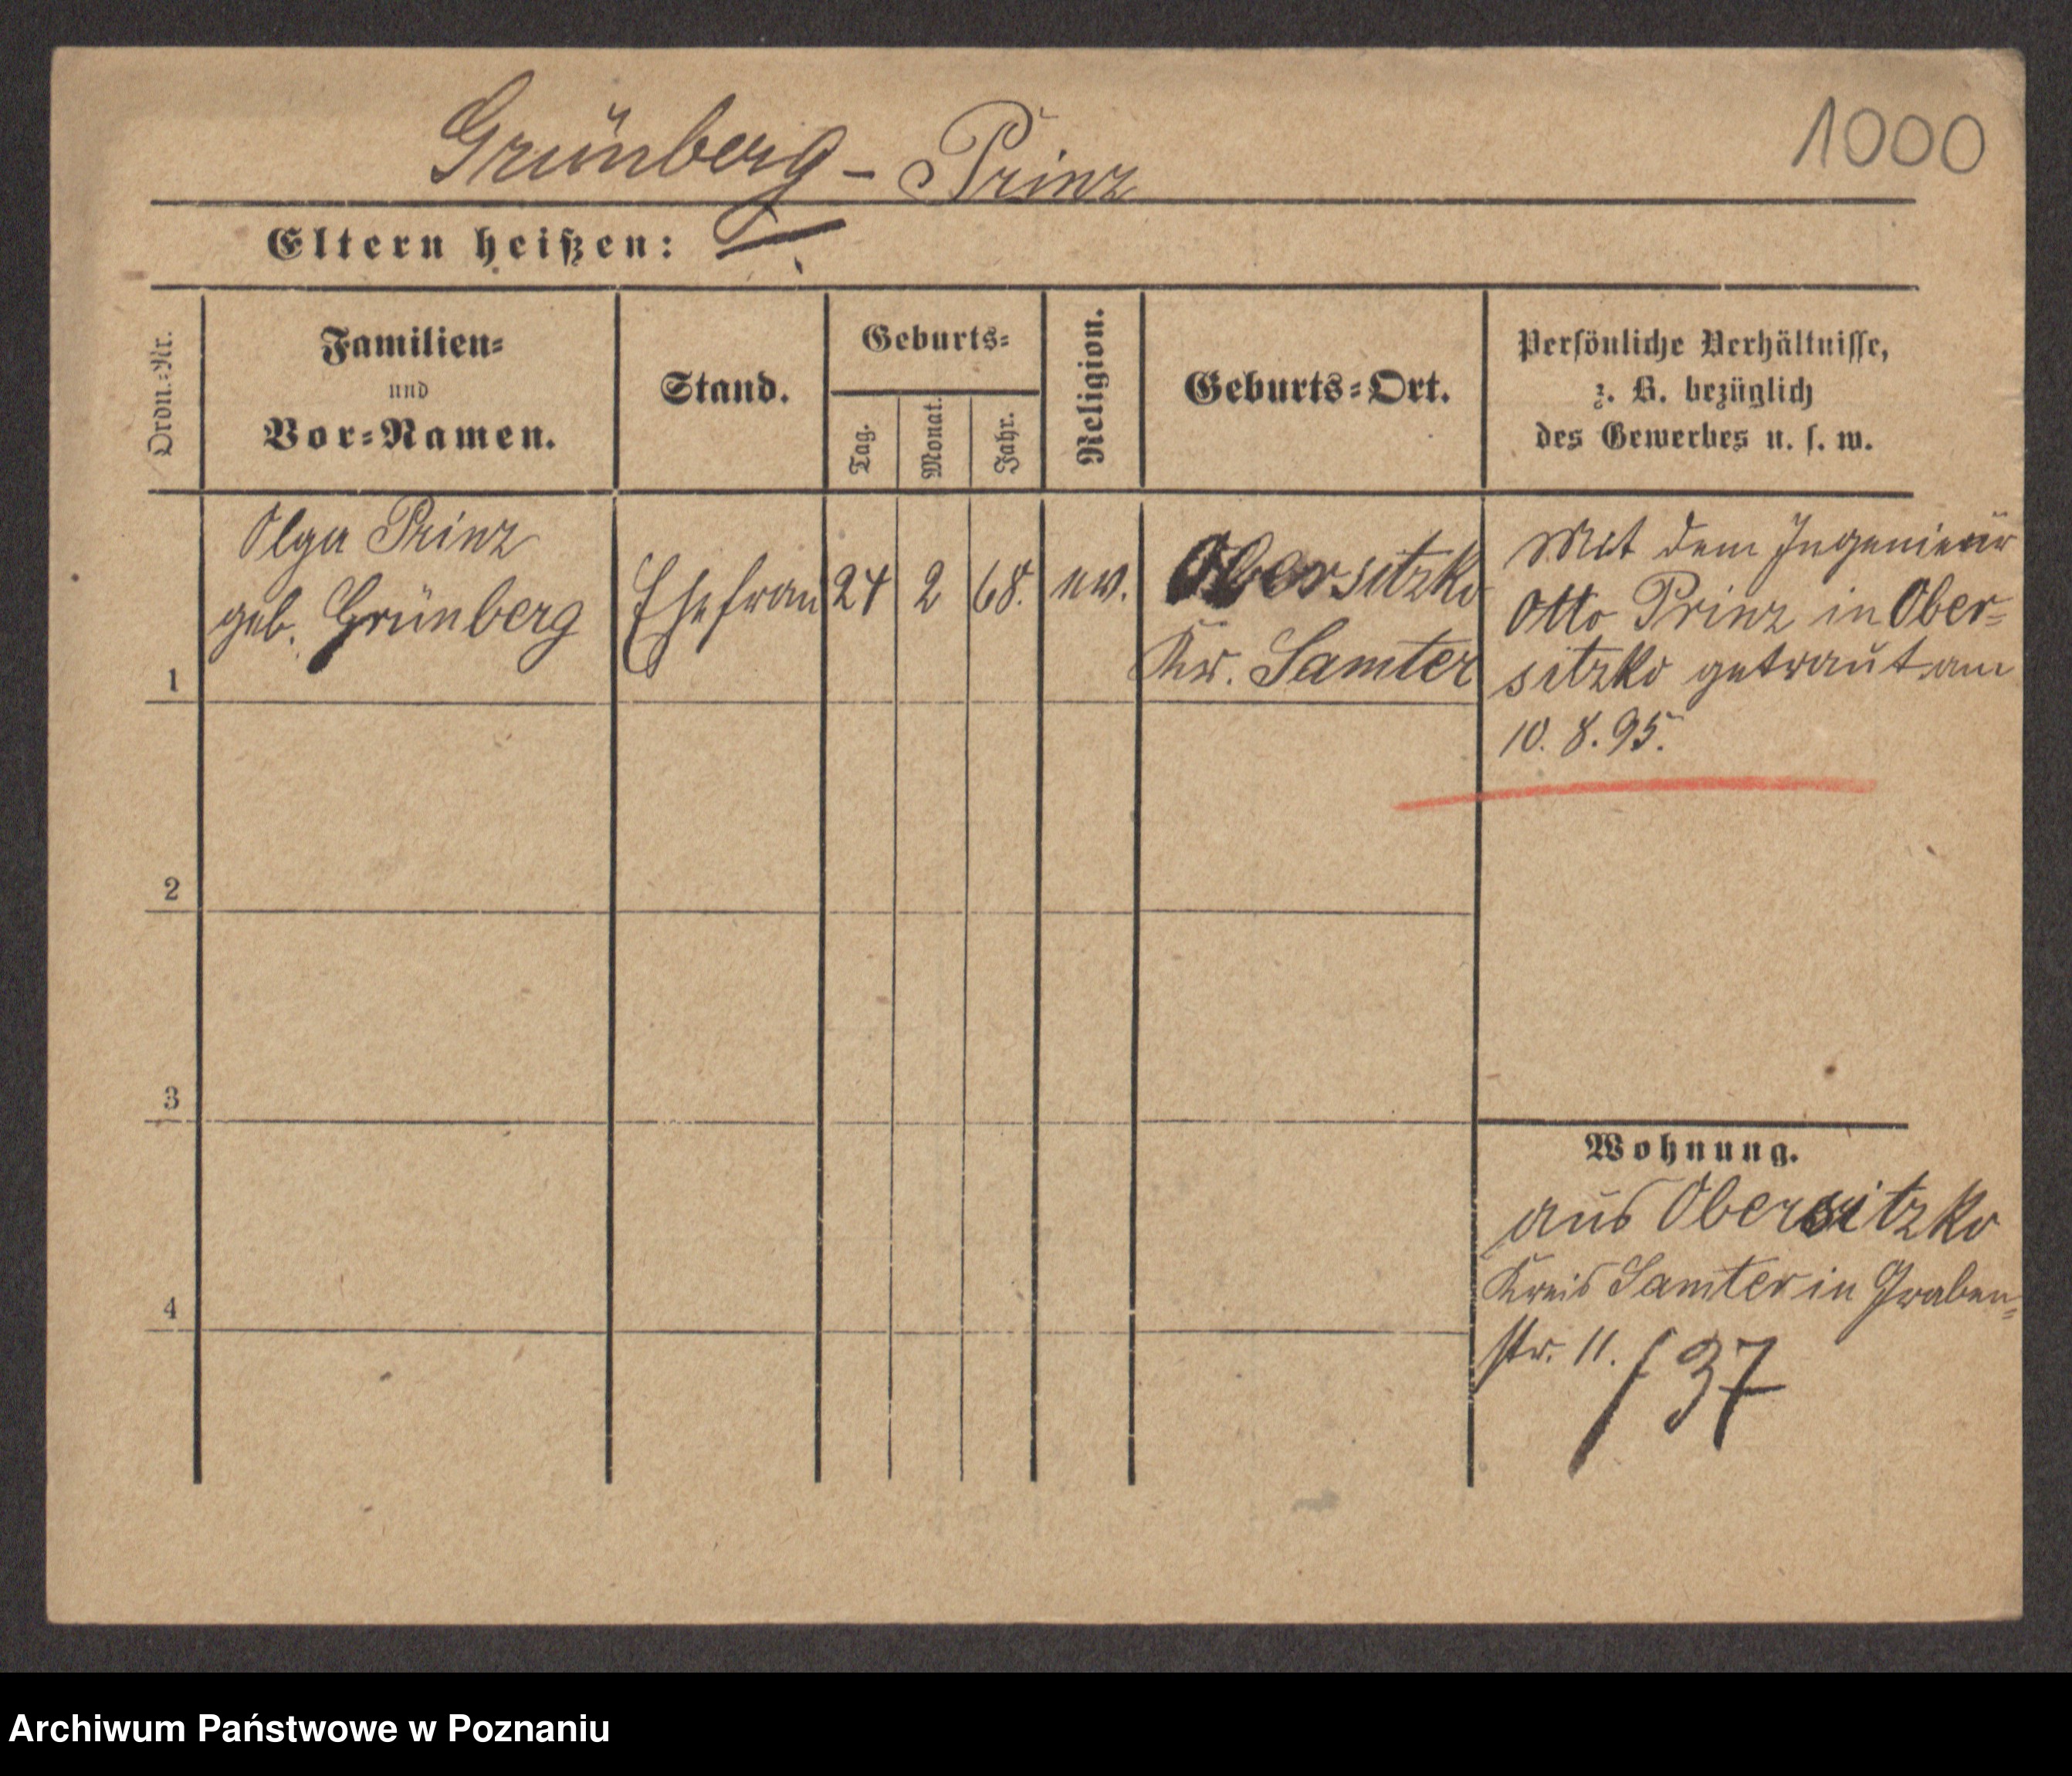 1000
Grünberg - Prinz
Eltern heißen: —
Ordn.-Nr.
Familien-
und
Vor-Namen.
Stand.
Geburts-
Tag.
Monat.
Jahr.
Religion.
Geburts-Ort.
Persönliche Verhältnisse,
z. B. bezüglich
des Gewerbes u. s. w.
1
Olga Prinz
geb. Grünberg
Ehefrau
24
2
68.
ev.
Obersitzko
Kr. Samter
Mit dem Ingenieur
Otto Prinz in Ober-
sitzko getraut am
10. 8. 95.
2
3
4
Wohnung.
aus Obersitzko
Kreis Samter in Graben-
str. 11. / 37
Archiwum Państwowe w Poznaniu